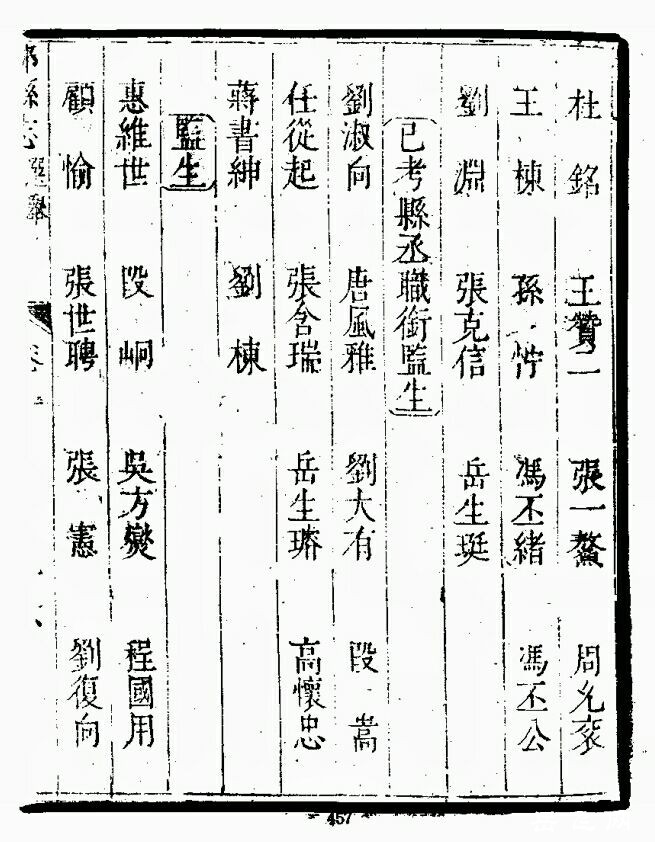 杜銘 王贊二 張一鰲 周允袞
王棟 孫 馮丕緒 馮丕公
劉淵 張克信 岳生珽
已考縣丞職銜監生
劉淑向 唐風雅 劉大有 段嵩
任從起 張含瑞 岳生璿 高懷忠
蔣書紳 劉棟
監生
惠維世 段峒 吳方燮 程國用
顧愉 張世聘 張憲 劉復向
縣志 選舉
457